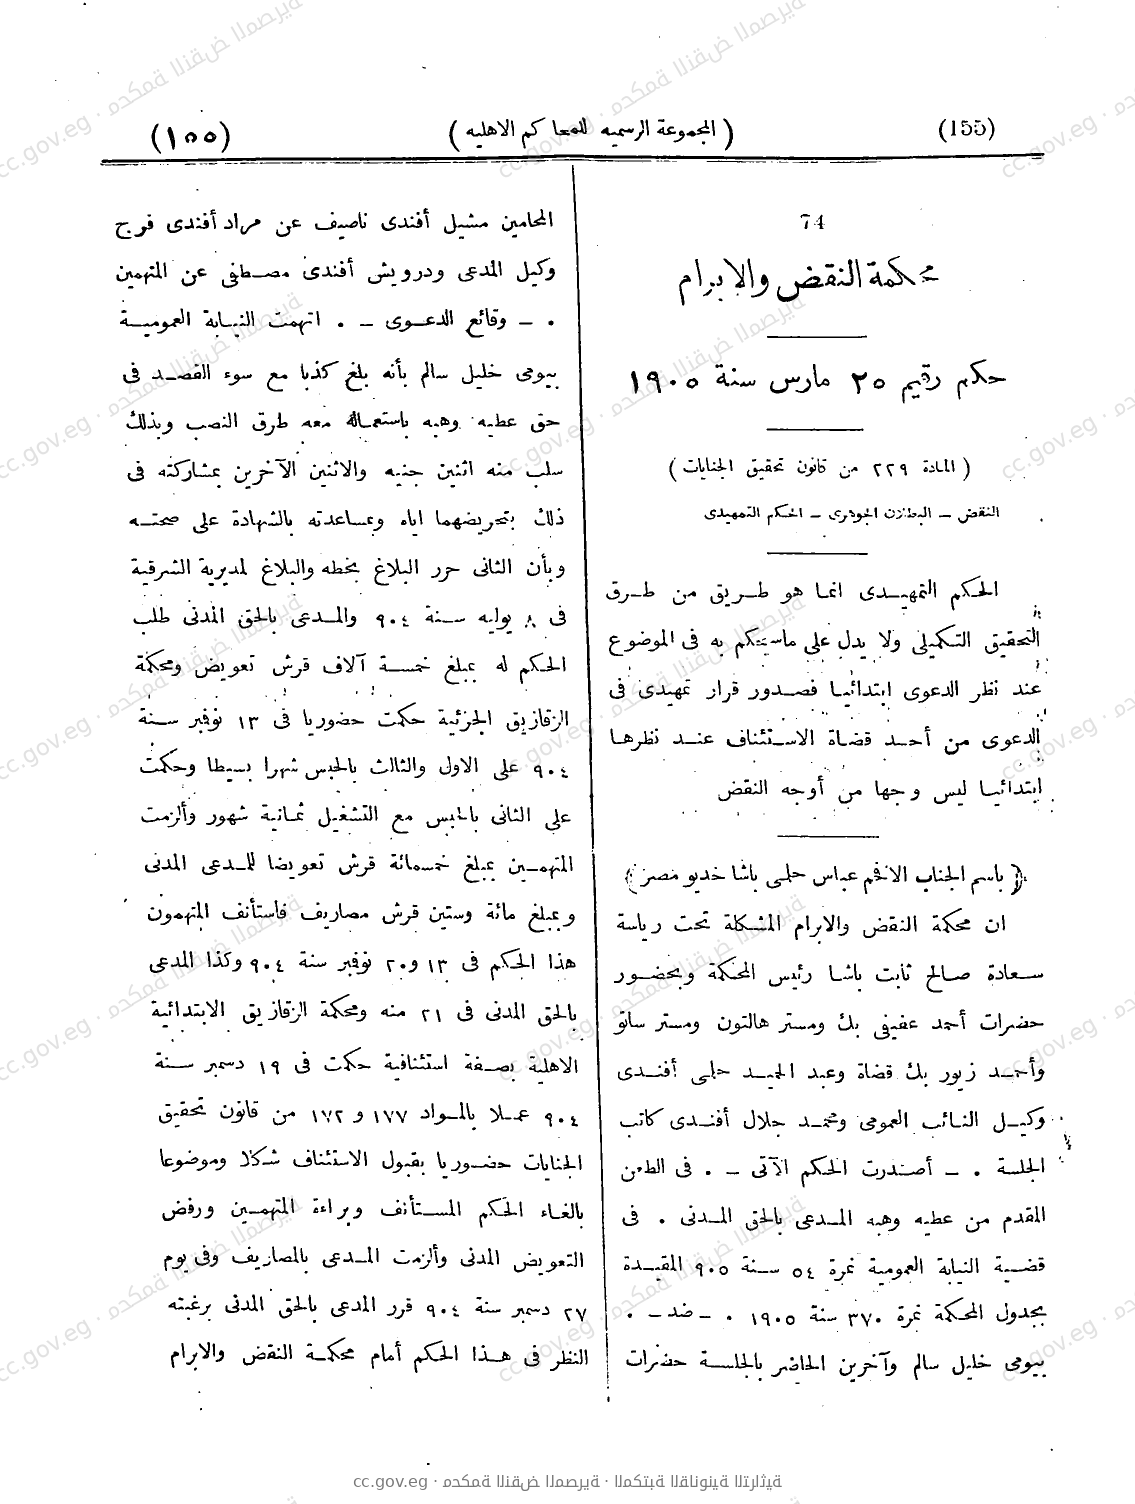 (155)
( المجموعة الرسميه للمحاكم الاهليه )
(١٥٥)
74
محكمة النقض والابرام
حكم رقيم ٢٥ مارس سنة ١٩٠٥
( المادة ٢٢٩ من قانون تحقيق الجنايات )
النقض – البطلان الجوهرى – الحكم التمهيدى
الحكم التمهيدى انما هو طريق من طرق
التحقيق التكميلى ولا يدل على ماسيحكم به فى الموضوع
عند نظر الدعوى ابتدائيا فصدور قرار تمهيدى فى
الدعوى من أحد قضاة الاستئناف عند نظرها
ابتدائيا ليس وجها من أوجه النقض
﴿ باسم الجناب الافخم عباس حلمى باشا خديو مصر ﴾
ان محكمة النقض والابرام المشكلة تحت رياسة
سعادة صالح ثابت باشا رئيس المحكمة وبحضور
حضرات أحمد عفيفى بك ومستر هالتون ومستر ساتو
وأحمد زيور بك قضاة وعبد الحميد حلمى أفندى
وكيل النائب العمومى ومحمد جلال أفندى كاتب
الجلسة . – أصدرت الحكم الآتى – . فى الطعن
المقدم من عطيه وهبه المدعى بالحق المدنى . فى
قضية النيابة العمومية نمرة ٥٤ سنة ٩٠٥ المقيدة
بجدول المحكمة نمرة ٣٧٠ سنة ١٩٠٥ . – ضد – .
بيومى خليل سالم وآخرين الحاضر بالجلسة حضرات
المحامين مشيل أفندى ناصيف عن مراد أفندى فرج
وكيل المدعى ودرويش أفندى مصطفى عن المتهمين
. – وقائع الدعوى – . اتهمت النيابة العمومية
بيومى خليل سالم بأنه بلغ كذبا مع سوء القصد فى
حق عطيه وهبه باستعماله معه طرق النصب وبذلك
سلب منه اثنين جنيه والاثنين الآخرين بمشاركته فى
ذلك بتحريضهما اياه وبمساعدته بالشهادة على صحته
وبأن الثانى حرر البلاغ بخطه والبلاغ لمديرية الشرقية
فى ٨ يوليه سنة ٩٠٤ والمدعى بالحق المدنى طلب
الحكم له بمبلغ خمسة آلاف قرش تعويض ومحكمة
الزقازيق الجزئية حكمت حضوريا فى ١٣ نوفمبر سنة
٩٠٤ على الاول والثالث بالحبس شهرا بسيطا وحكمت
على الثانى بالحبس مع التشغيل ثمانية شهور وألزمت
المتهمين بمبلغ خمسمائة قرش تعويضا للمدعى المدنى
وبمبلغ مائة وستين قرش مصاريف فاستأنف المتهمون
هذا الحكم فى ١٣ و٢٠ نوفمبر سنة ٩٠٤ وكذا المدعى
بالحق المدنى فى ٢١ منه ومحكمة الزقازيق الابتدائية
الاهلية بصفة استئنافية حكمت فى ١٩ دسمبر سنة
٩٠٤ عملا بالمواد ١٧٧ و ١٧٢ من قانون تحقيق
الجنايات حضوريا بقبول الاستئناف شكلا وموضوعا
بالغاء الحكم المستأنف وبراءة المتهمين ورفض
التعويض المدنى وألزمت المدعى بالمصاريف وفى يوم
٢٧ دسمبر سنة ٩٠٤ قرر المدعى بالحق المدنى برغبته
النظر فى هذا الحكم أمام محكمة النقض والابرام
cc.gov.eg · محكمة النقض المصرية · المكتبة القانونية التراثية